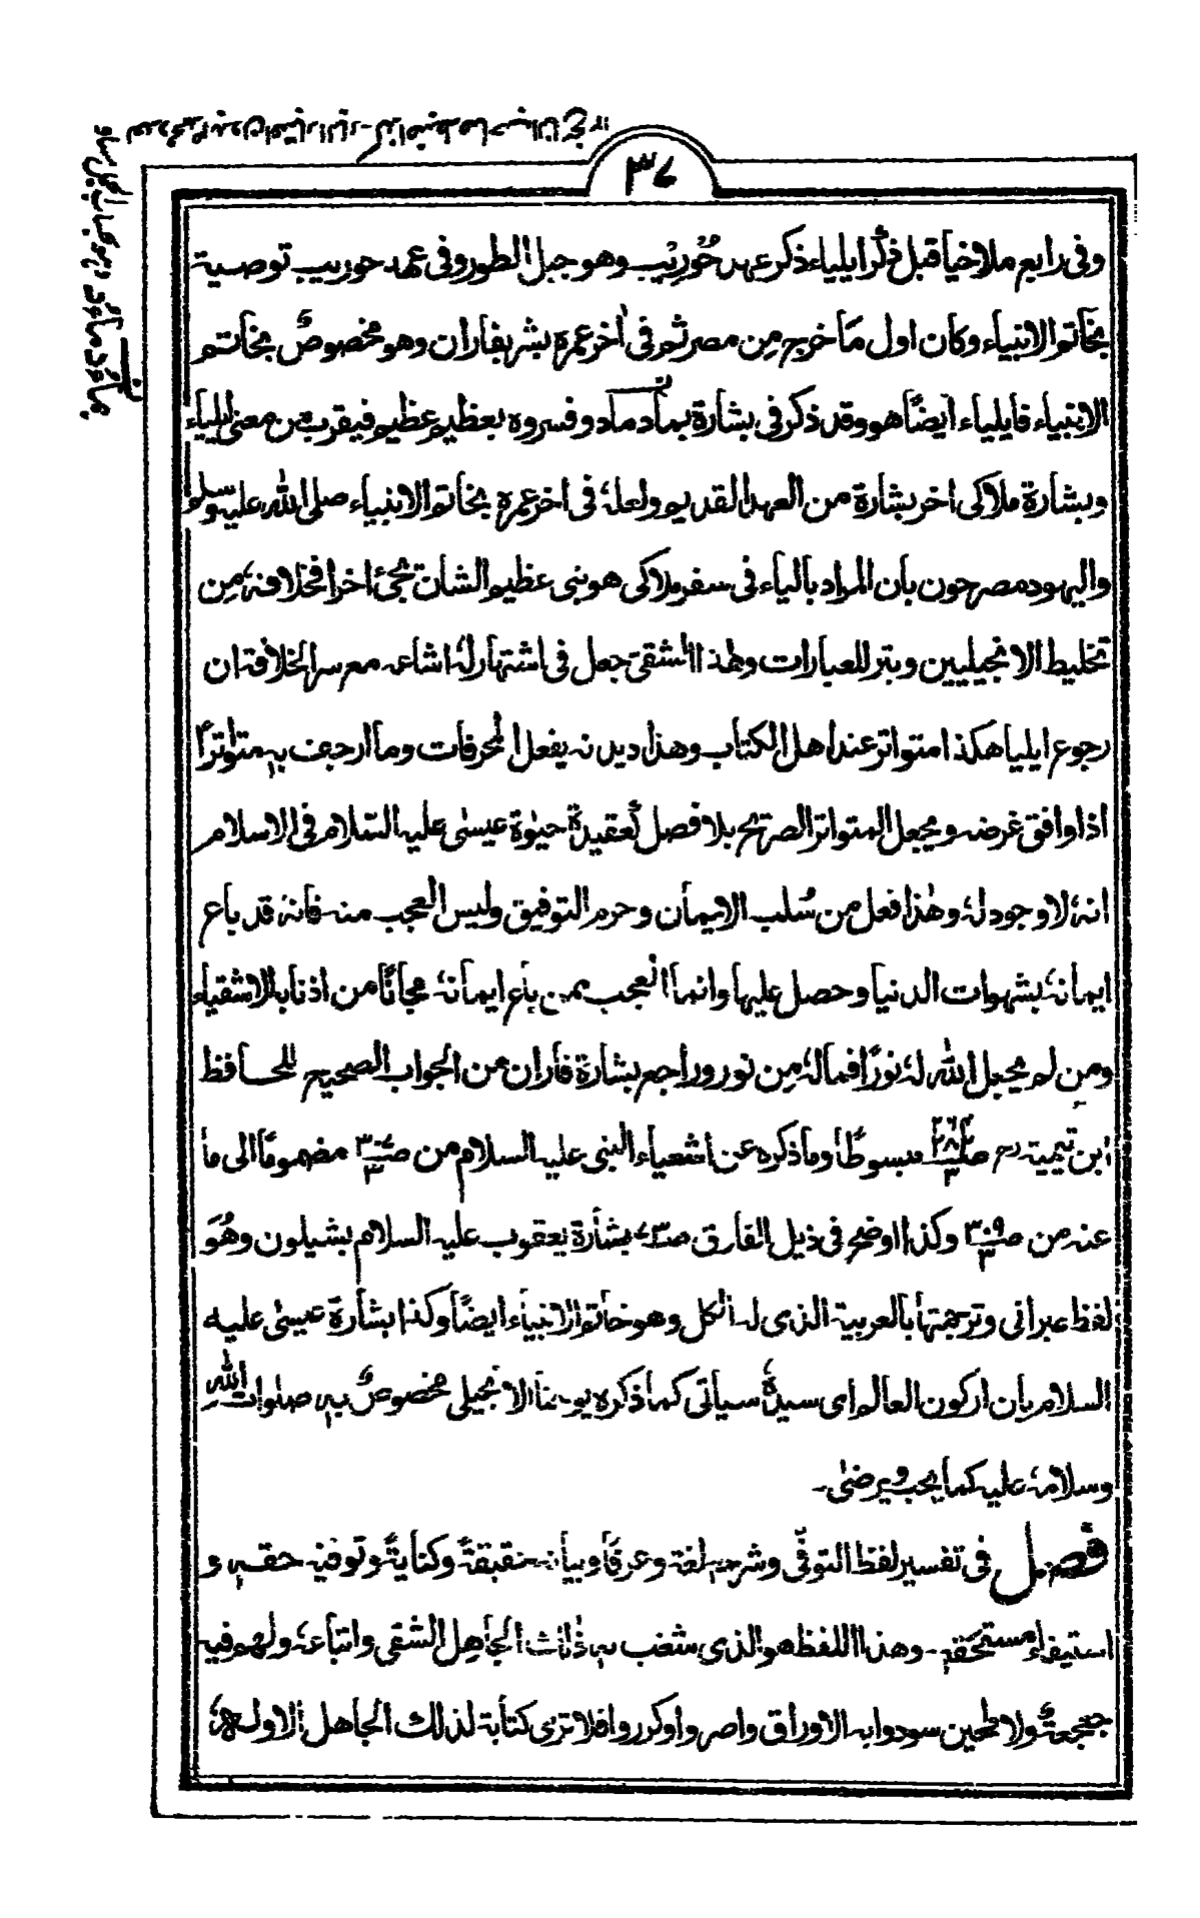 ٣٧
وفى رابع ملاخيا قبل ذكر ايلياء ذكر عهد حُوْرِيْب وهو جبل الطور وفى عهد حوريب توصية
بخاتم الانبياء وكان اول مَا خرج مِن مصر ثم فى اٰخر عمره بشر بفاران وهو مخصوصٌ بخاتم
الانبياء فايلياء ايضًا هو وقد ذكر فى بشارة بماد ماد وفسروه بعظيم عظيم فيقرب من معنى ايلياء
وبشارة ملاكى اخر بشارة من العهد القديم ولعلهٗ فى اخر عمره بخاتم الانبياء صلى الله عليه وسلم
واليهود مصرحون بان المراد بالياء فى سفر ملاكى هو نبى عظيم الشان يجئ اخرا فخلافهٗ مِن
تخليط الانجيليين وبتر للعبارات ولهذا الشقى جعل فى اشتهار لهٗ اشاعه مع سر الخلافة ان
رجوع ايليا هكذا متواتر عند اهل الكتاب وهذا ديدنه يفعل المحرفات وما ارجف به متواترًا
اذا وافق غرضه ويجعل المتواتر الصريح بلا فصل كعقيدة حيوٰة عيسىٰ عليه السّلام فى الاسلام
انهٗ لا وجود لهٗ وهٰذا فعل من سُلب الايمان وحرم التوفيق وليس العجب منه فانهٗ قد باع
ايمانهٗ بشهوات الدنيا وحصل عليها وانما العجب ممن باع ايمانهٗ مجانًا من اذناب الاشقياء
ومن لم يجعل الله لهٗ نورًا فما لهٗ مِن نور وراجع بشارة فاران من الجواب الصحيح للحافظ
ابن تيمية رح مبسوطًا وما ذكره عن اشعياء النبى عليه السلام من مضمومًا الى ما
عنه من صـ٣٠٩ـ٣ وكذا اوضح فى ذيل الفارق بشارة يعقوب عليه السلام بشيلون وهُوَ
لفظ عبرانى وترجمتها بالعربية الذى له الكل وهو خاتم الانبياء ايضًا وكذا بشارة عيسىٰ عليه
السلام بان اركون العالم اى سيدهٗ سيأتى كما ذكره يوحنا الانجيلى مخصوصٌ به صلوات اللهِ
وسلامهٗ عليه كما يحب ويرضىٰ۔
فصل فى تفسير لفظ التوفّى وشرحه لغة وعرفًا وبيانه حقيقةً وكنايةً وتوفيه حقه و
استيفاء مستحقه۔ وهذا اللفظ هو الذى شغب به ذٰلك الجاهل الشقى واتباعهٗ ولهم فيه
جعجعةٌ ولا طحين سودوا به الاوراق واصروا وكرروا فلا ترى كتابة لذلك الجاهل الاولهج